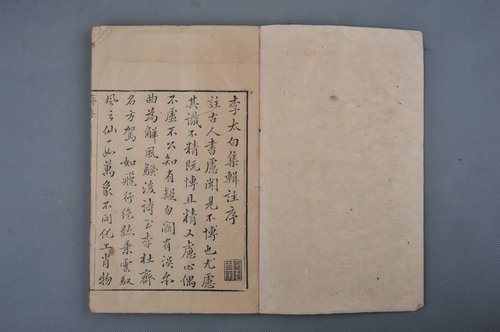 李太白集輯註序
註古人書慮聞見不博也尤慮
其識不精既博且精又慮心偶
不虛不公知有疑勿闕有誤尔
曲為解風騷後詩至李杜齊
名方駕一如飛行絕跡乘雲馭
風之仙一如萬象不同化工肖物